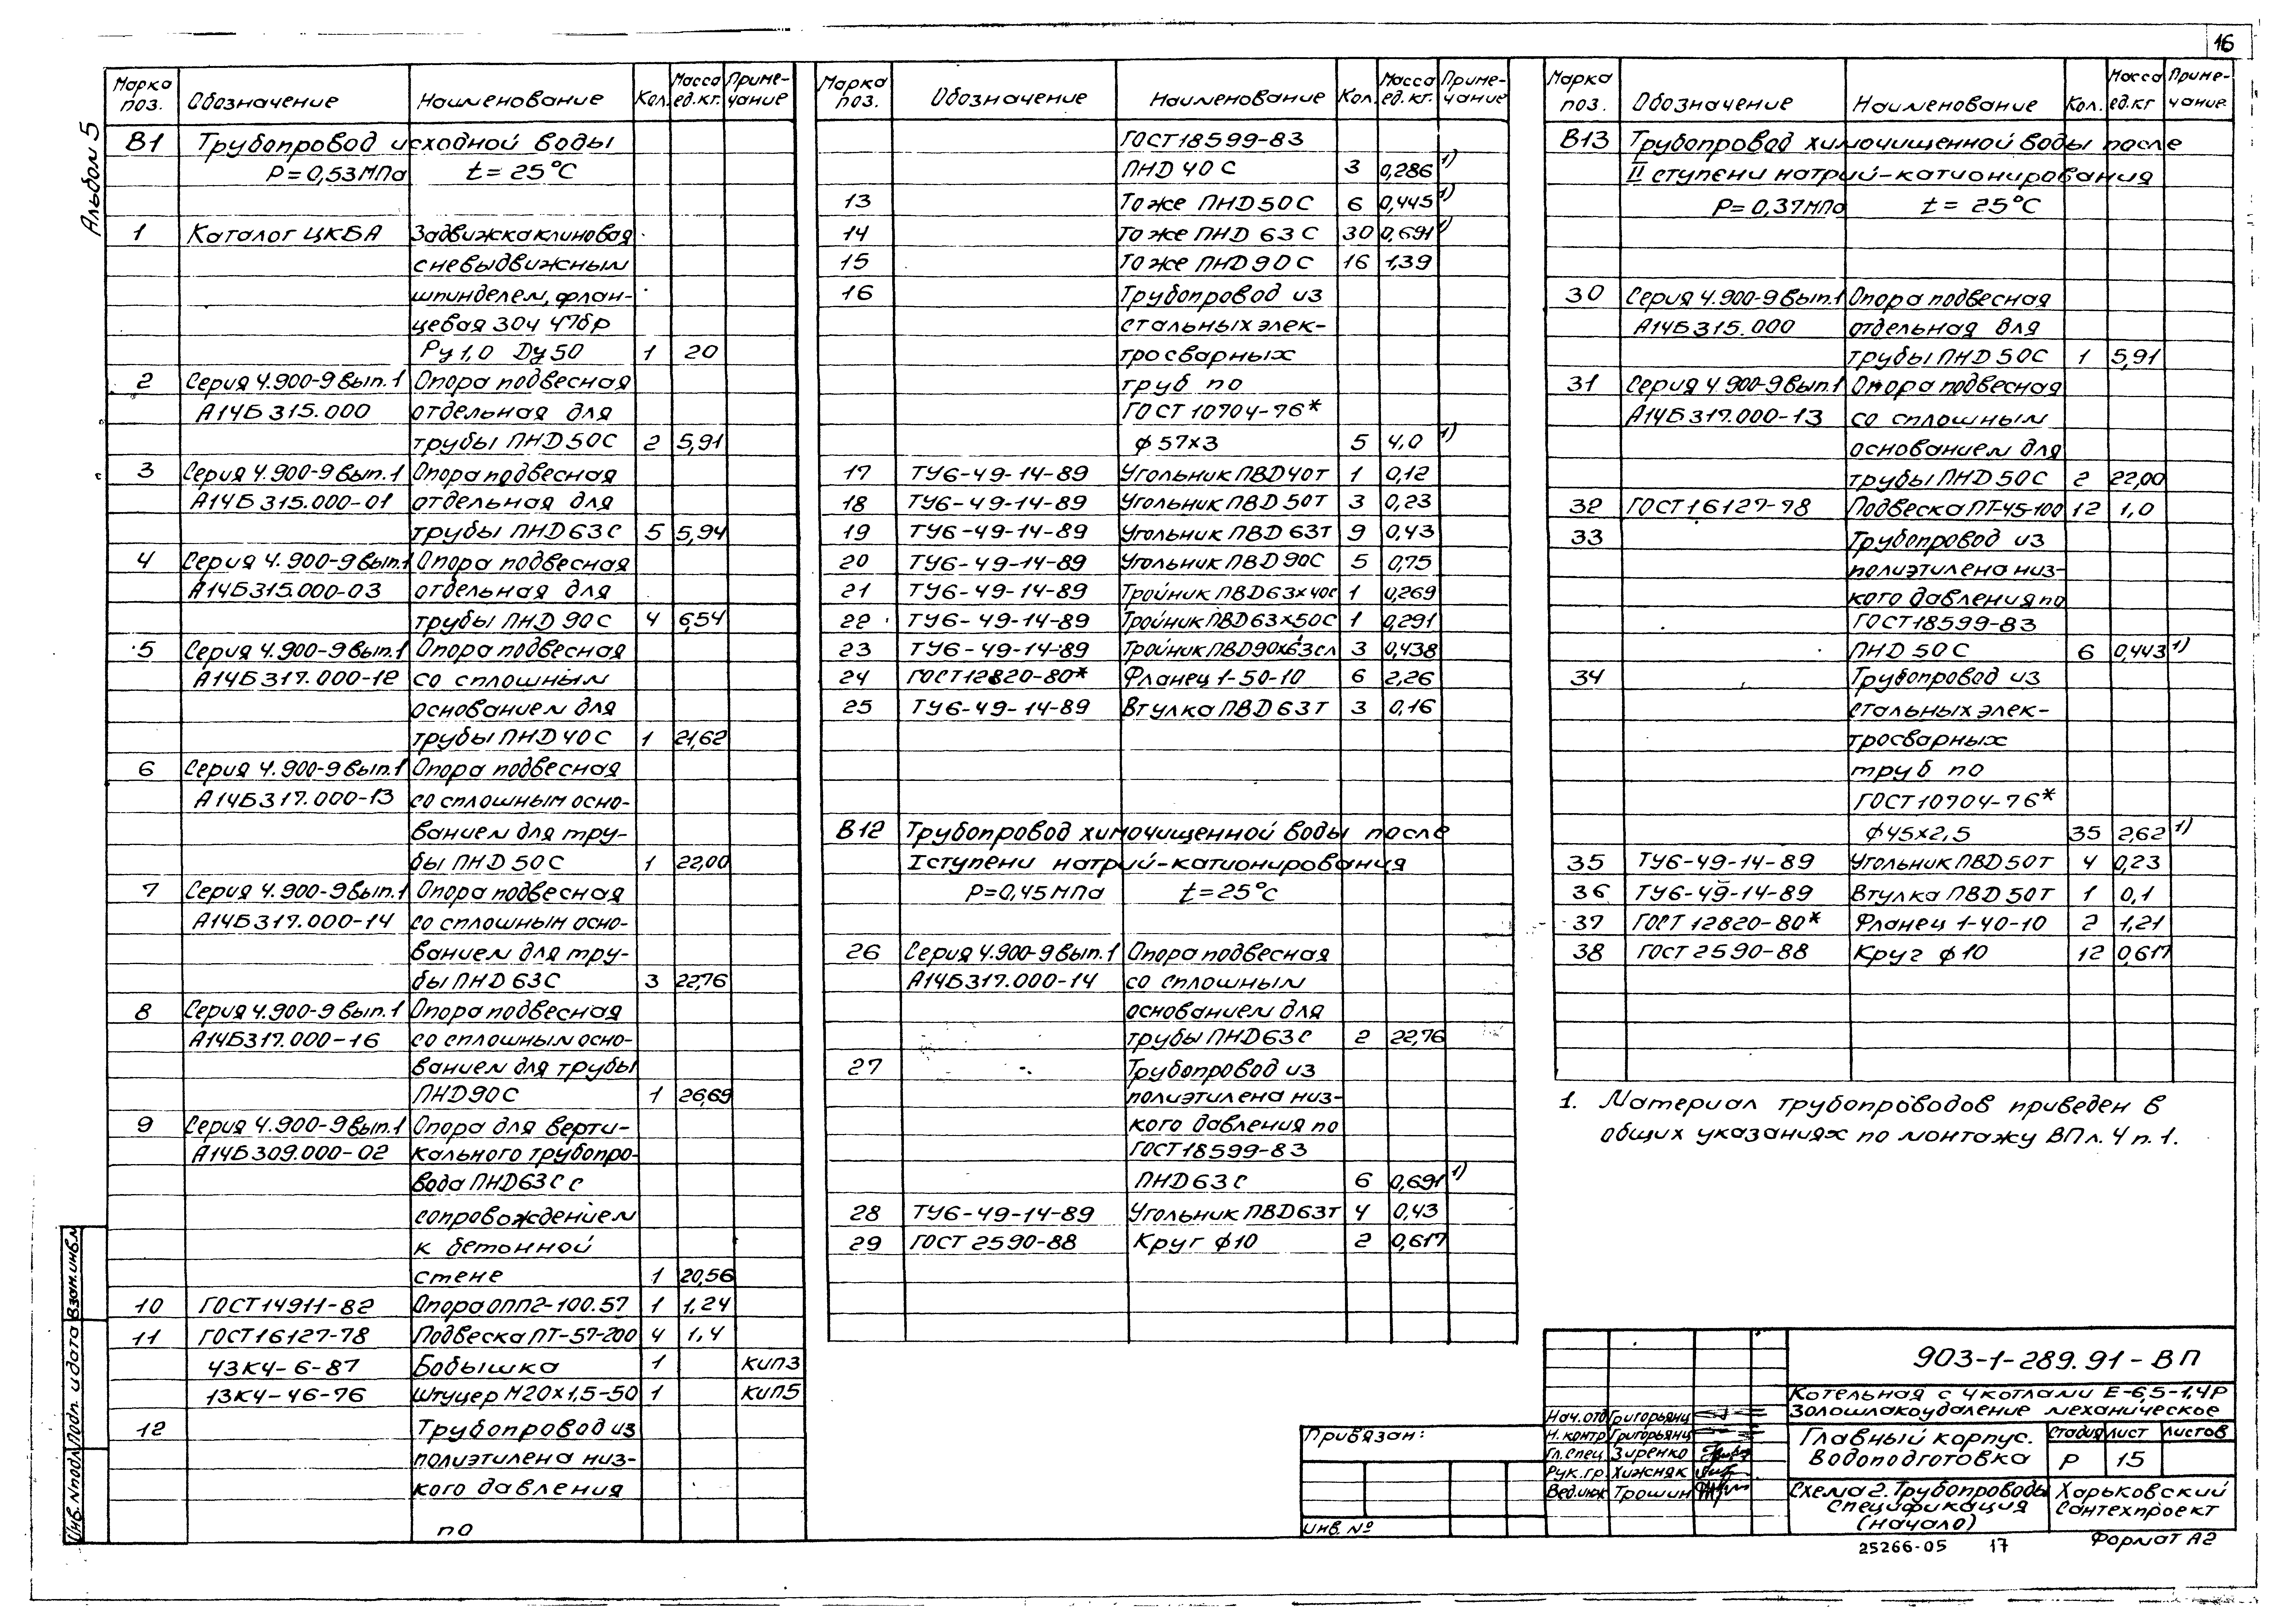 16
Альбом 5
Марка поз. Обозначение Наименование Кол. Масса ед.кг. Примечание
В1 Трубопровод исходной воды
Р=0,53МПа t=25°С
1 Каталог ЦКБА Задвижка клиновая
с невыдвижным
шпинделем, флан-
цевая 30ч 47бр
Ру1,0 Ду50 1 20
2 Серия 4.900-9 вып.1 Опора подвесная
А14Б315.000 отдельная для
трубы ПНД50С 2 5,91
3 Серия 4.900-9 вып.1 Опора подвесная
А14Б315.000-01 отдельная для
трубы ПНД63С 5 5,94
4 Серия 4.900-9 вып.1 Опора подвесная
А14Б315.000-03 отдельная для
трубы ПНД 90С 4 6,54
5 Серия 4.900-9 вып.1 Опора подвесная
А14Б317.000-12 со сплошным
основанием для
трубы ПНД40С 1 21,62
6 Серия 4.900-9 вып.1 Опора подвесная
А14Б317.000-13 со сплошным осно-
ванием для тру-
бы ПНД 50С 1 22,00
7 Серия 4.900-9 вып.1 Опора подвесная
А14Б317.000-14 со сплошным осно-
ванием для тру-
бы ПНД 63С 3 22,76
8 Серия 4.900-9 вып.1 Опора подвесная
А14Б317.000-16 со сплошным осно-
ванием для трубы
ПНД90С 1 26,69
9 Серия 4.900-9 вып.1 Опора для верти-
А14Б309.000-02 кального трубопро-
вода ПНД63С с
сопровождением
к бетонной
стене 1 20,56
10 ГОСТ14911-82 Опора ОПП2-100.57 1 1,24
11 ГОСТ16127-78 Подвеска ПТ-57-200 4 1,4
43К4-6-87 Бобышка 1 КИП3
13К4-46-76 Штуцер М20х1,5-50 1 КИП5
12 Трубопровод из
полиэтилена низ-
кого давления
по
Марка поз. Обозначение Наименование Кол. Масса ед.кг. Примечание
ГОСТ18599-83
ПНД 40С 3 0,286 1)
13 То же ПНД50С 6 0,445 1)
14 То же ПНД 63С 30 0,691 1)
15 То же ПНД90С 16 1,39
16 Трубопровод из
стальных элек-
тросварных
труб по
ГОСТ 10704-76*
ф57х3 5 4,0 1)
17 ТУ6-49-14-89 Угольник ПВД40Т 1 0,12
18 ТУ6-49-14-89 Угольник ПВД 50Т 3 0,23
19 ТУ6-49-14-89 Угольник ПВД 63Т 9 0,43
20 ТУ6-49-14-89 Угольник ПВД90С 5 0,75
21 ТУ6-49-14-89 Тройник ПВД63х40С 1 0,269
22 ТУ6-49-14-89 Тройник ПВД63х50С 1 0,291
23 ТУ6-49-14-89 Тройник ПВД90х63СЛ 3 0,438
24 ГОСТ12820-80* Фланец 1-50-10 6 2,26
25 ТУ6-49-14-89 Втулка ПВД63Т 3 0,16
В12 Трубопровод химочищенной воды после
I ступени натрий-катионирования
Р=0,45МПа t=25°С
26 Серия 4.900-9 вып.1 Опора подвесная
А14Б317.000-14 со сплошным
основанием для
трубы ПНД63С 2 22,76
27 Трубопровод из
полиэтилена низ-
кого давления по
ГОСТ18599-83
ПНД63С 6 0,691 1)
28 ТУ6-49-14-89 Угольник ПВД63Т 4 0,43
29 ГОСТ 2590-88 Круг ф10 2 0,617
Марка поз. Обозначение Наименование Кол. Масса ед.кг Примечание
В13 Трубопровод химочищенной воды после
II ступени натрий-катионирования
Р=0,37МПа t=25°С
30 Серия 4.900-9 вып.1 Опора подвесная
А14Б315.000 отдельная для
трубы ПНД 50С 1 5,91
31 Серия 4.900-9 вып.1 Опора подвесная
А14Б317.000-13 со сплошным
основанием для
трубы ПНД50С 2 22,00
32 ГОСТ16127-78 Подвеска ПТ-45-100 12 1,0
33 Трубопровод из
полиэтилена низ-
кого давления по
ГОСТ18599-83
ПНД 50С 6 0,443 1)
34 Трубопровод из
стальных элек-
тросварных
труб по
ГОСТ10704-76*
ф45х2,5 35 2,62 1)
35 ТУ6-49-14-89 Угольник ПВД50Т 4 0,23
36 ТУ6-49-14-89 Втулка ПВД 50Т 1 0,1
37 ГОСТ 12820-80* Фланец 1-40-10 2 1,21
38 ГОСТ 2590-88 Круг ф10 12 0,617
1. Материал трубопроводов приведен в
общих указаниях по монтажу ВП л.4 п.1.
903-1-289.91-ВП
Котельная с 4 котлами Е-6,5-1,4Р
Золошлакоудаление механическое
Нач.отд Григорьянц
Н.контр Григорьянц
Гл.спец Зиренко
Рук.гр. Хижняк
Вед.инж Трошин
Главный корпус.
Водоподготовка
Стадия Лист Листов
Р 15
Схема 2. Трубопроводы
Спецификация
(начало)
Харьковский
Сантехпроект
Привязан:
Инв. №
Инв. N подл. Подп. и дата Взам.инв.N
25266-05 17 Формат А2